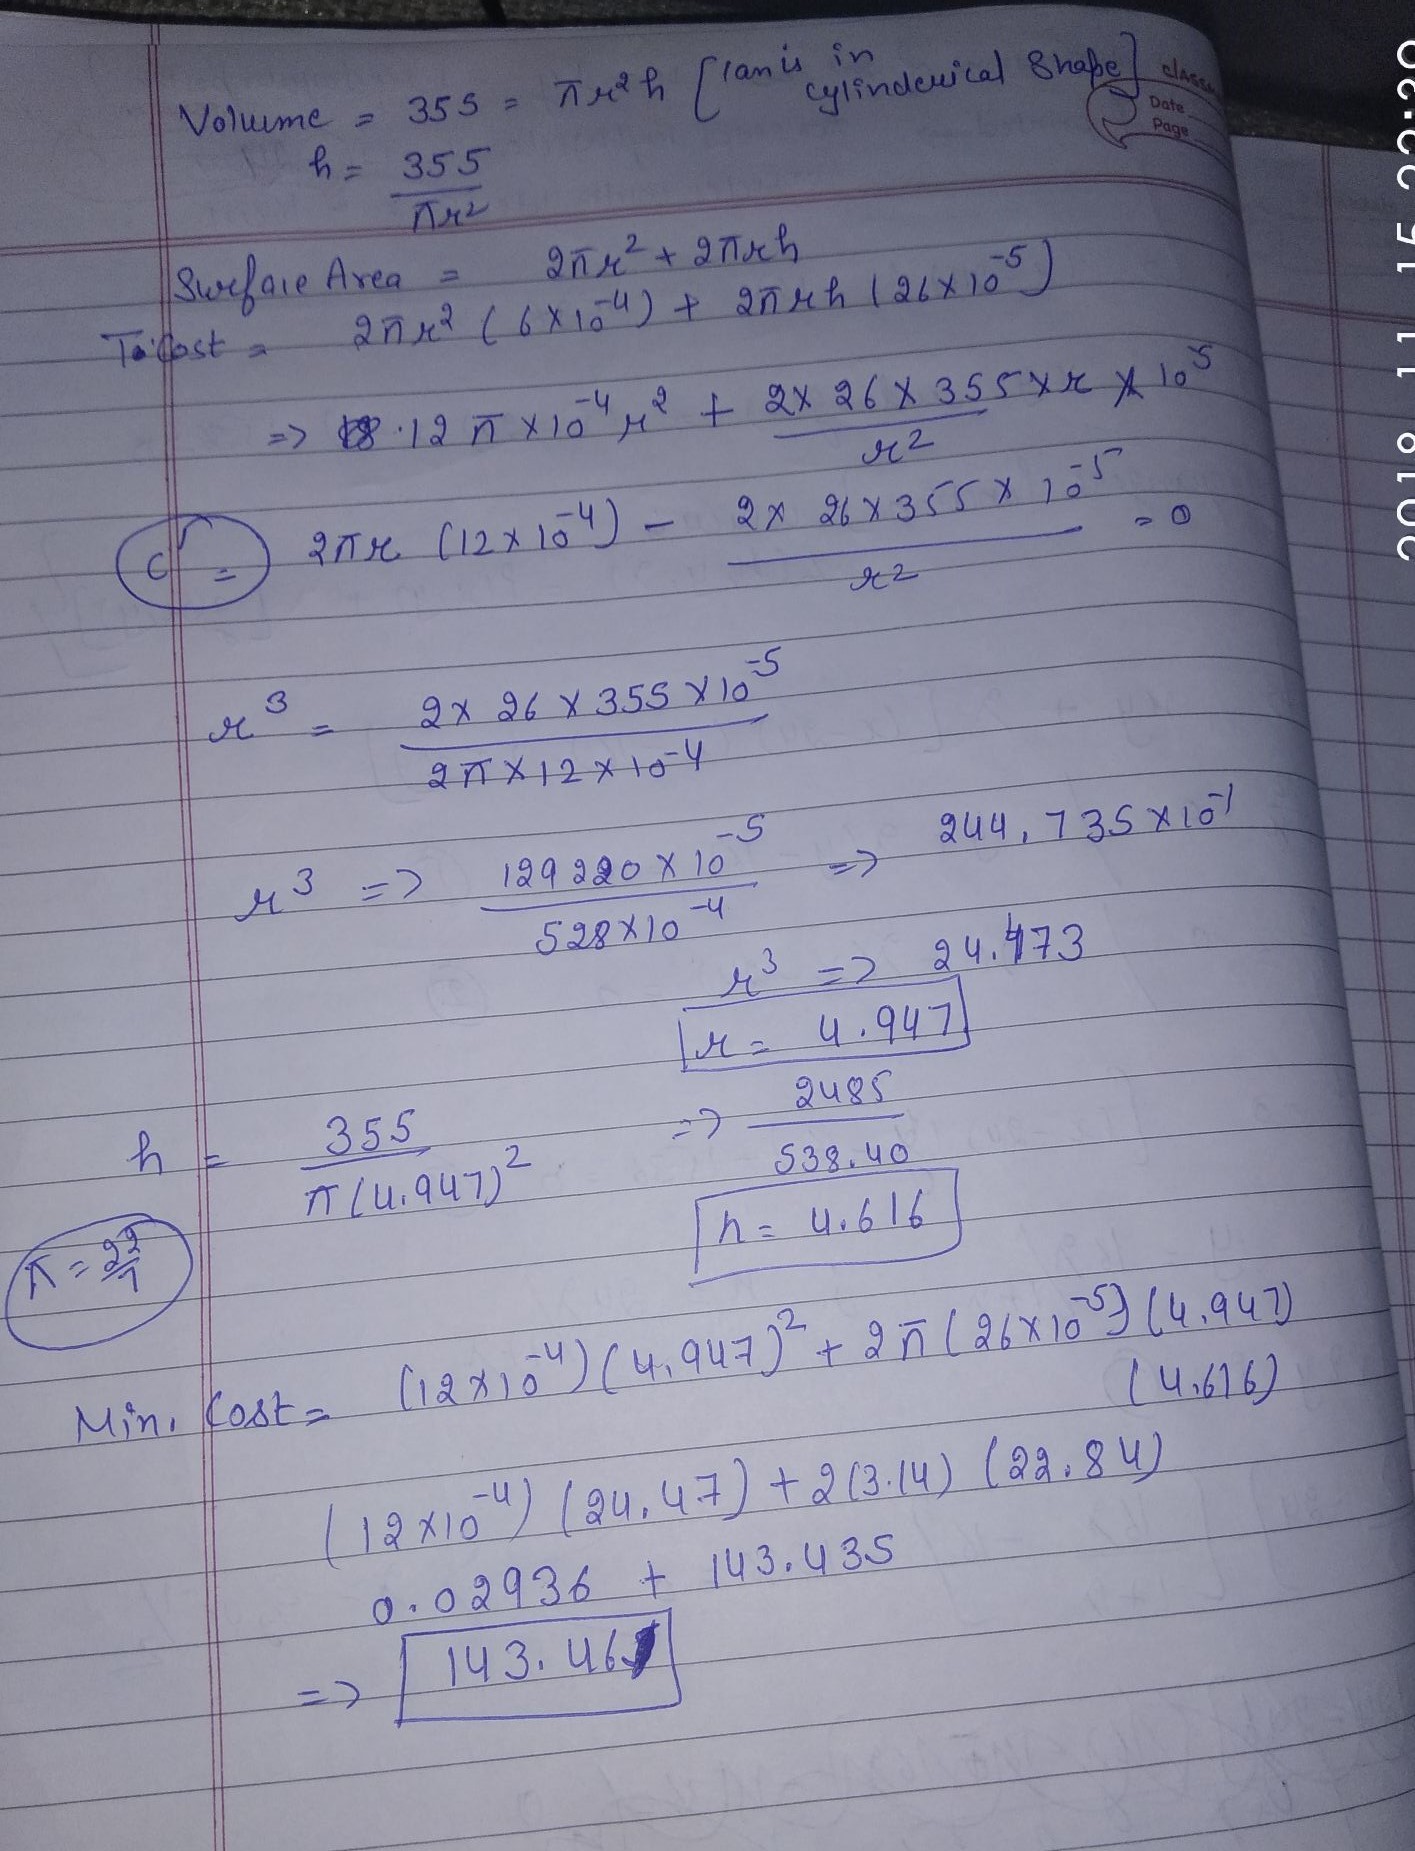 Volume = 355 = πr²h [Can is in cylinderical Shape]
classm
Date
Page
h = 355/πr²
Surface Area = 2πr² + 2πrh
T. Cost = 2πr² (6×10⁻⁴) + 2πrh (26×10⁻⁵)
=> 12π×10⁻⁴r² + 2×26×355×r×10⁻⁵/r²
C' = 2πr (12×10⁻⁴) − 2×26×355×10⁻⁵/r² = 0
r³ = 2×26×355×10⁻⁵/2π×12×10⁻⁴
r³ => 129220×10⁻⁵/528×10⁻⁴ => 244.735×10⁻¹
r³ => 24.473
r = 4.947
h = 355/π(4.947)² => 2485/538.40
h = 4.616
π = 22/7
Min. Cost = (12×10⁻⁴)(4.947)² + 2π(26×10⁻⁵)(4.947)
(4.616)
(12×10⁻⁴)(24.47) + 2(3.14)(22.84)
0.02936 + 143.435
=> 143.46